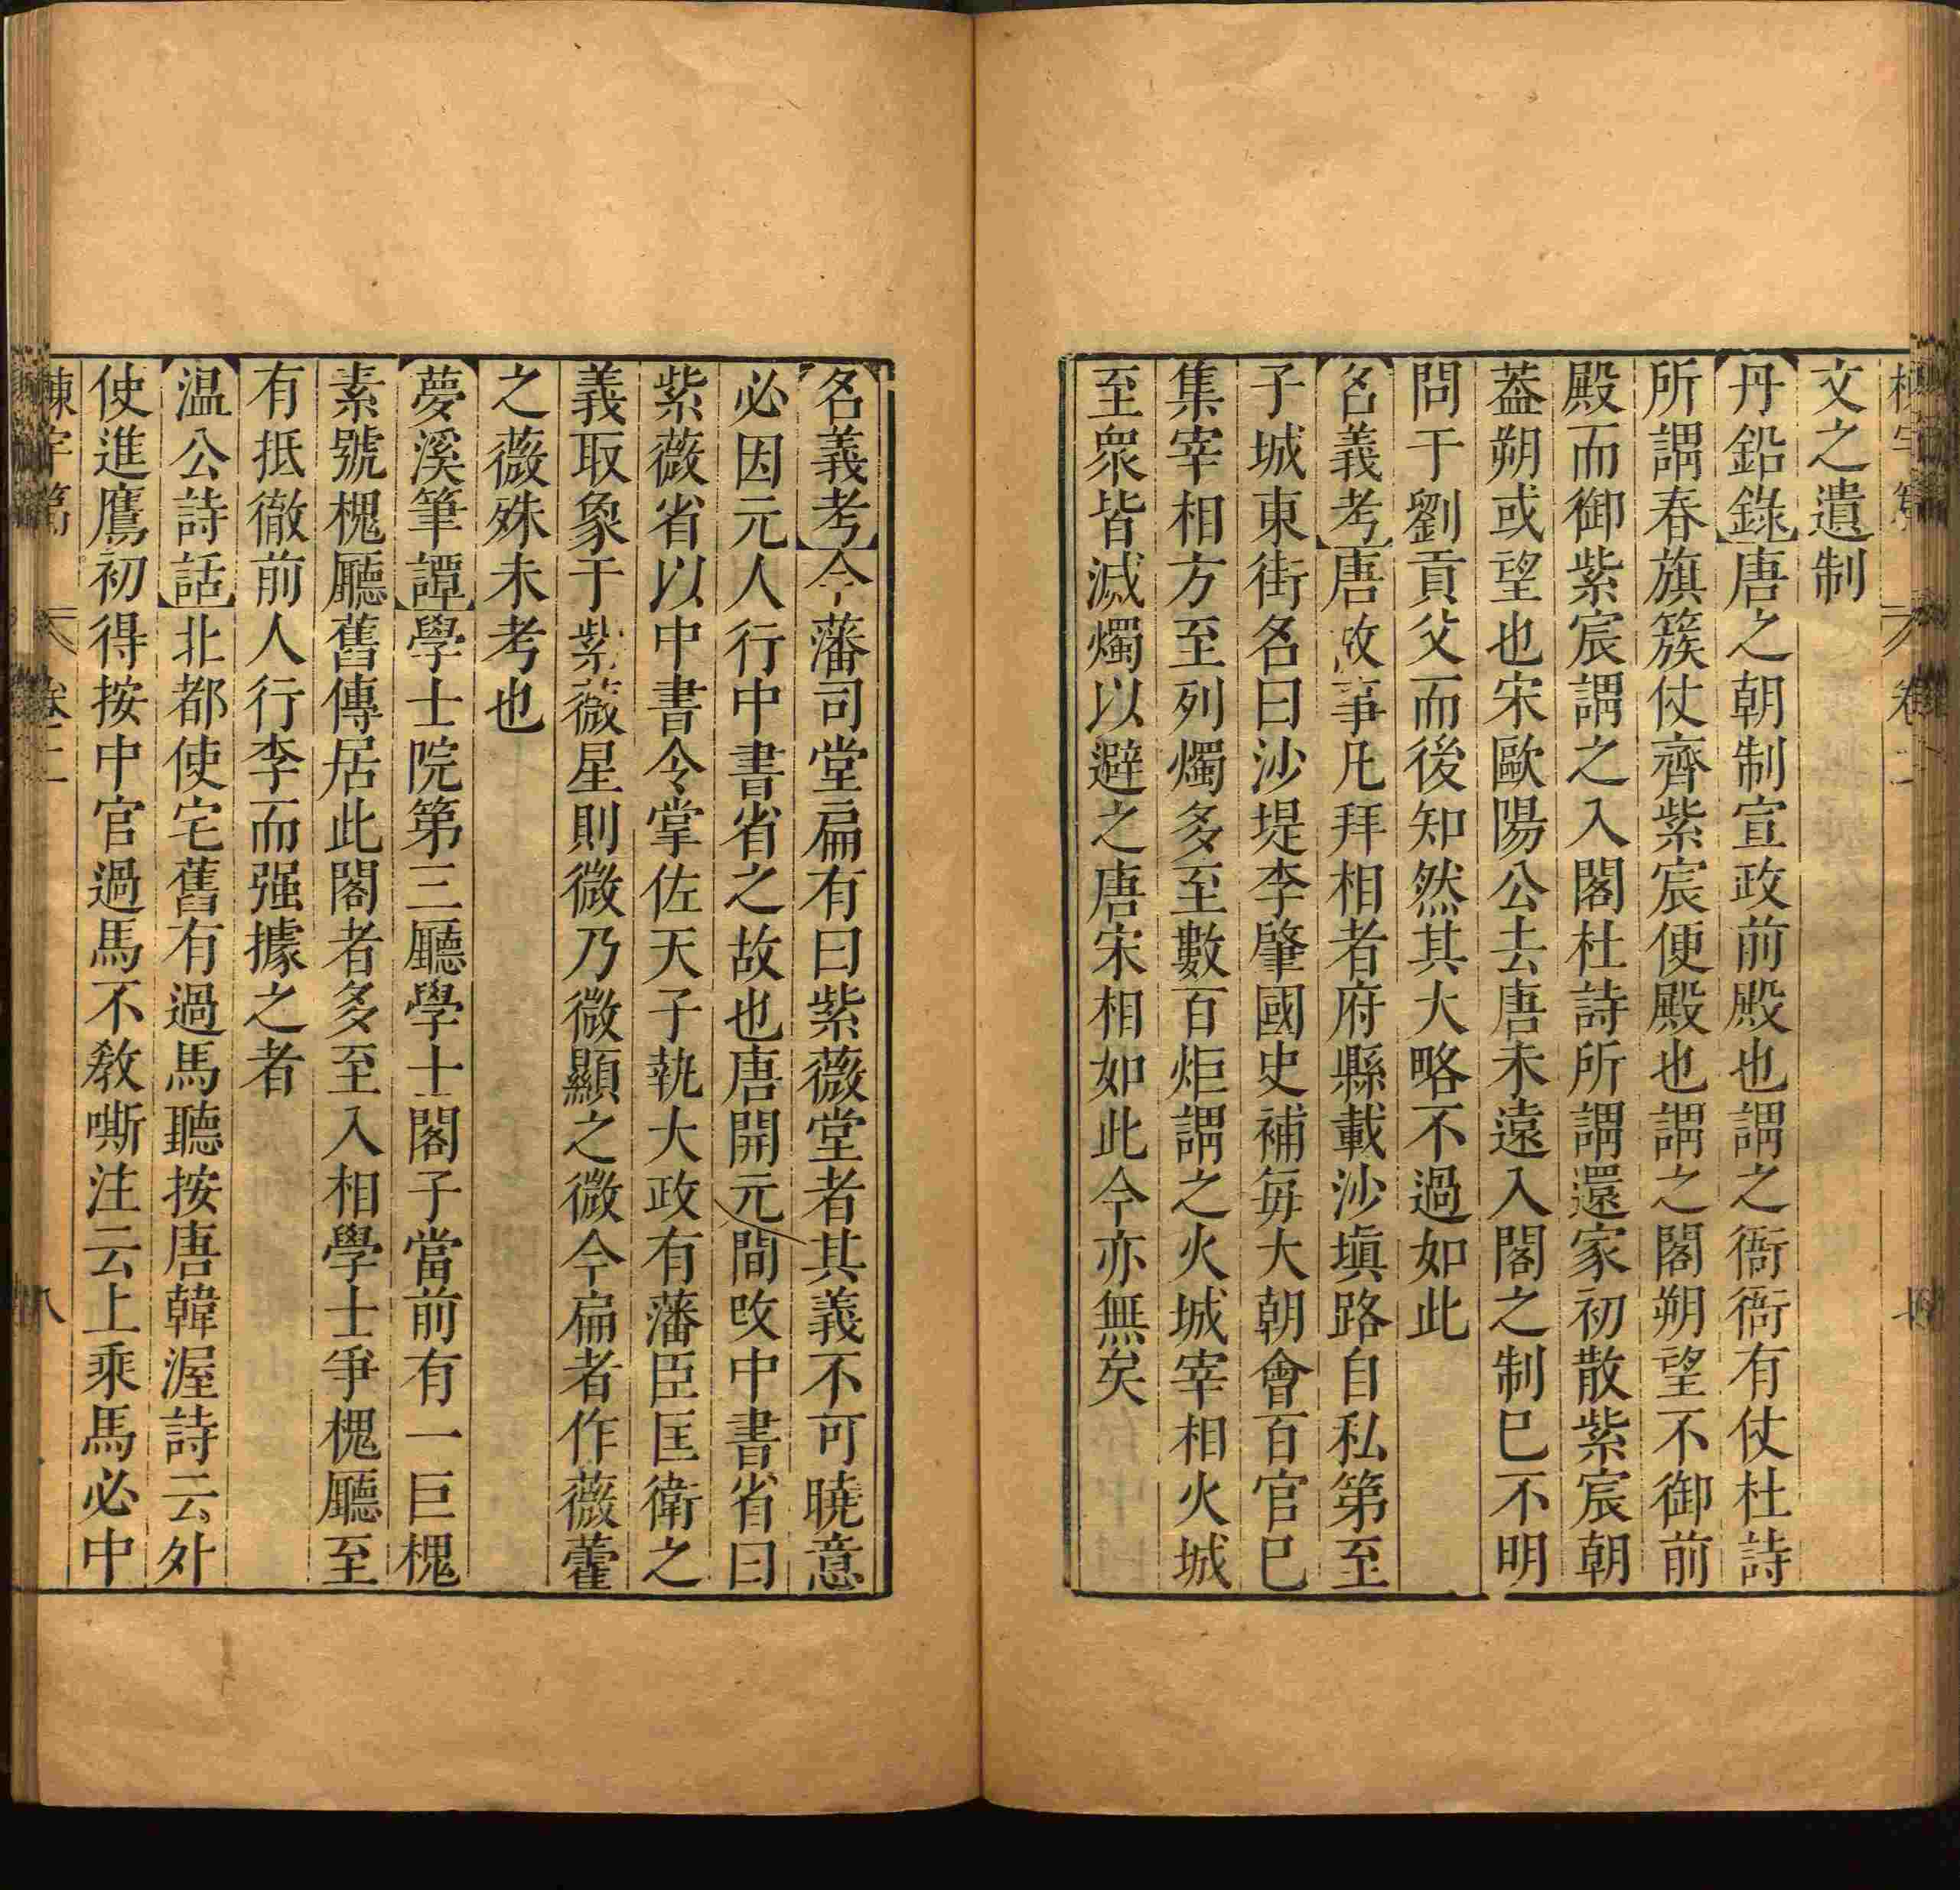 文之遺制
丹鉛錄唐之朝制宣政前殿也謂之衙衙有仗杜詩
所謂春旗簇仗齊紫宸便殿也謂之閣朔望不御前
殿而御紫宸謂之入閣杜詩所謂還家初散紫宸朝
葢朔或望也宋歐陽公去唐未遠入閣之制巳不明
問于劉貢父而後知然其大略不過如此
名義考唐故事凡拜相者府縣載沙塡路自私第至
子城東街名曰沙堤李肇國史補每大朝會百官巳
集宰相方至列燭多至數百炬謂之火城宰相火城
至衆皆滅燭以避之唐宋相如此今亦無矣
名義考今藩司堂扁有曰紫薇堂者其義不可曉意
必因元人行中書省之故也唐開元間攺中書省曰
紫薇省以中書令掌佐天子執大政有藩臣匡衛之
義取象于紫薇星則微乃微顯之微今扁者作薇藿
之薇殊未考也
夢溪筆譚學士院第三廳學士閣子當前有一巨槐
素號槐廳舊傳居此閣者多至入相學士爭槐廳至
有抵徹前人行李而强據之者
温公詩話北都使宅舊有過馬聽按唐韓渥詩云外
使進鷹初得按中官過馬不敎嘶注云上乘馬必中